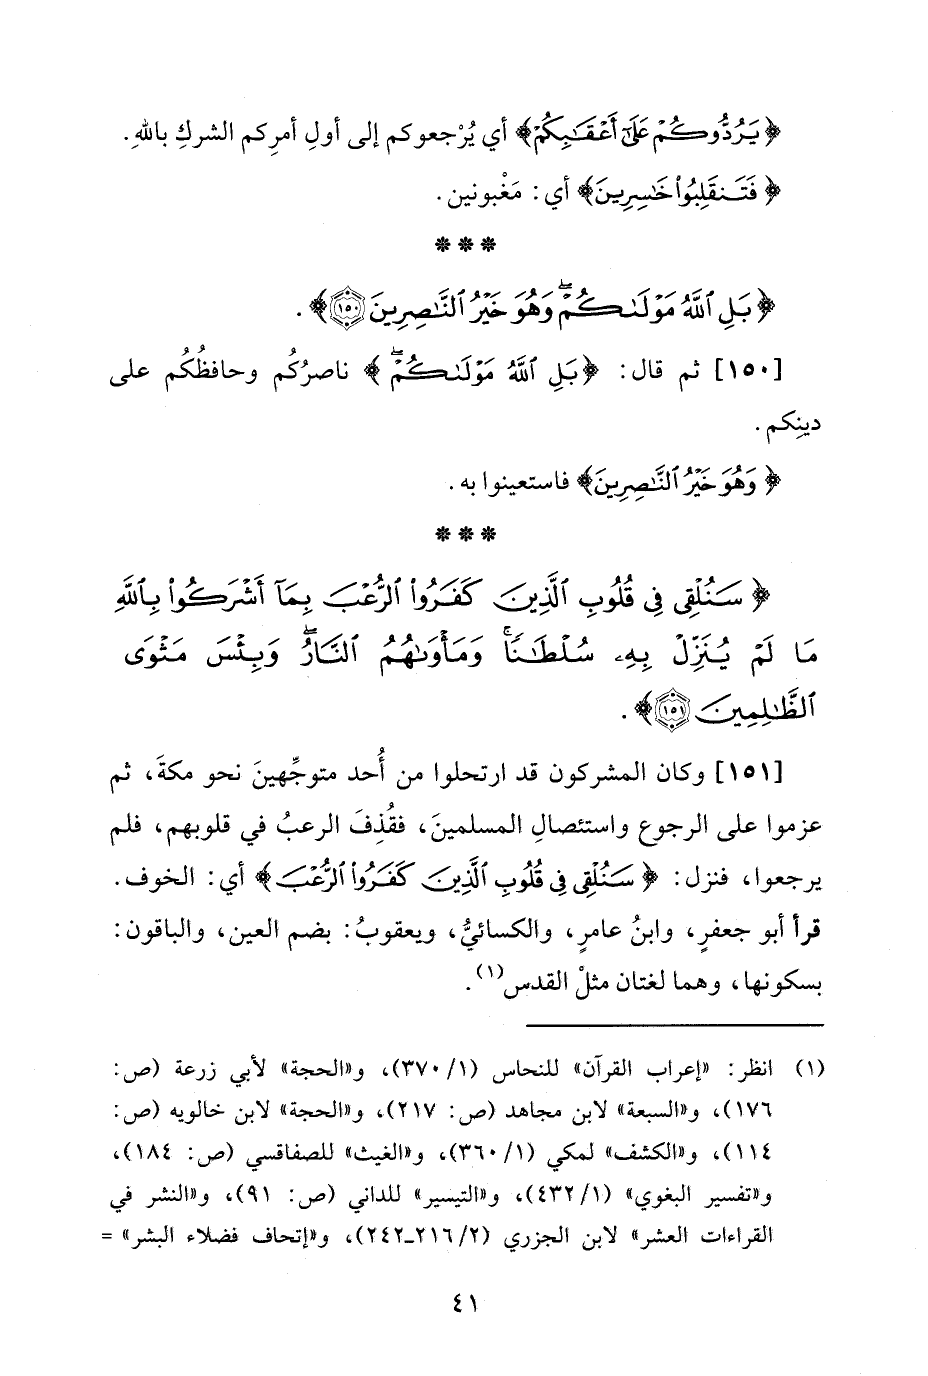 ﴿يَرُدُّوكُمْ عَلَىٰٓ أَعْقَٰبِكُمْ﴾ أي يُرْجعوكم إلى أولِ أمرِكم الشركِ باللهِ.
﴿فَتَنقَلِبُوا۟ خَٰسِرِينَ﴾ أي: مَغْبونين.
***
﴿بَلِ ٱللَّهُ مَوْلَىٰكُمْ ۖ وَهُوَ خَيْرُ ٱلنَّٰصِرِينَ ۝١٥٠﴾.
[١٥٠] ثم قال: ﴿بَلِ ٱللَّهُ مَوْلَىٰكُمْ ۖ﴾ ناصرُكُم وحافظُكُم على
دينِكم.
﴿وَهُوَ خَيْرُ ٱلنَّٰصِرِينَ﴾ فاستعينوا به.
***
﴿سَنُلْقِى فِى قُلُوبِ ٱلَّذِينَ كَفَرُوا۟ ٱلرُّعْبَ بِمَآ أَشْرَكُوا۟ بِٱللَّهِ
مَا لَمْ يُنَزِّلْ بِهِۦ سُلْطَٰنًا ۚ وَمَأْوَىٰهُمُ ٱلنَّارُ ۖ وَبِئْسَ مَثْوَى
ٱلظَّٰلِمِينَ ۝١٥١﴾.
[١٥١] وكان المشركون قد ارتحلوا من أُحد متوجِّهينَ نحو مكةَ، ثم
عزموا على الرجوع واستئصالِ المسلمينَ، فقُذِفَ الرعبُ في قلوبهم، فلم
يرجعوا، فنزل: ﴿سَنُلْقِى فِى قُلُوبِ ٱلَّذِينَ كَفَرُوا۟ ٱلرُّعْبَ﴾ أي: الخوف.
قرأ أبو جعفرٍ، وابنُ عامرٍ، والكسائيُّ، ويعقوبُ: بضم العين، والباقون:
بسكونها، وهما لغتان مثلْ القدس(١).
(١) انظر: «إعراب القرآن» للنحاس (١/ ٣٧٠)، و«الحجة» لأبي زرعة (ص:
١٧٦)، و«السبعة» لابن مجاهد (ص: ٢١٧)، و«الحجة» لابن خالويه (ص:
١١٤)، و«الكشف» لمكي (١/ ٣٦٠)، و«الغيث» للصفاقسي (ص: ١٨٤)،
و«تفسير البغوي» (١/ ٤٣٢)، و«التيسير» للداني (ص: ٩١)، و«النشر في
القراءات العشر» لابن الجزري (٢/ ٢١٦ـ٢٤٢)، و«إتحاف فضلاء البشر» =
٤١